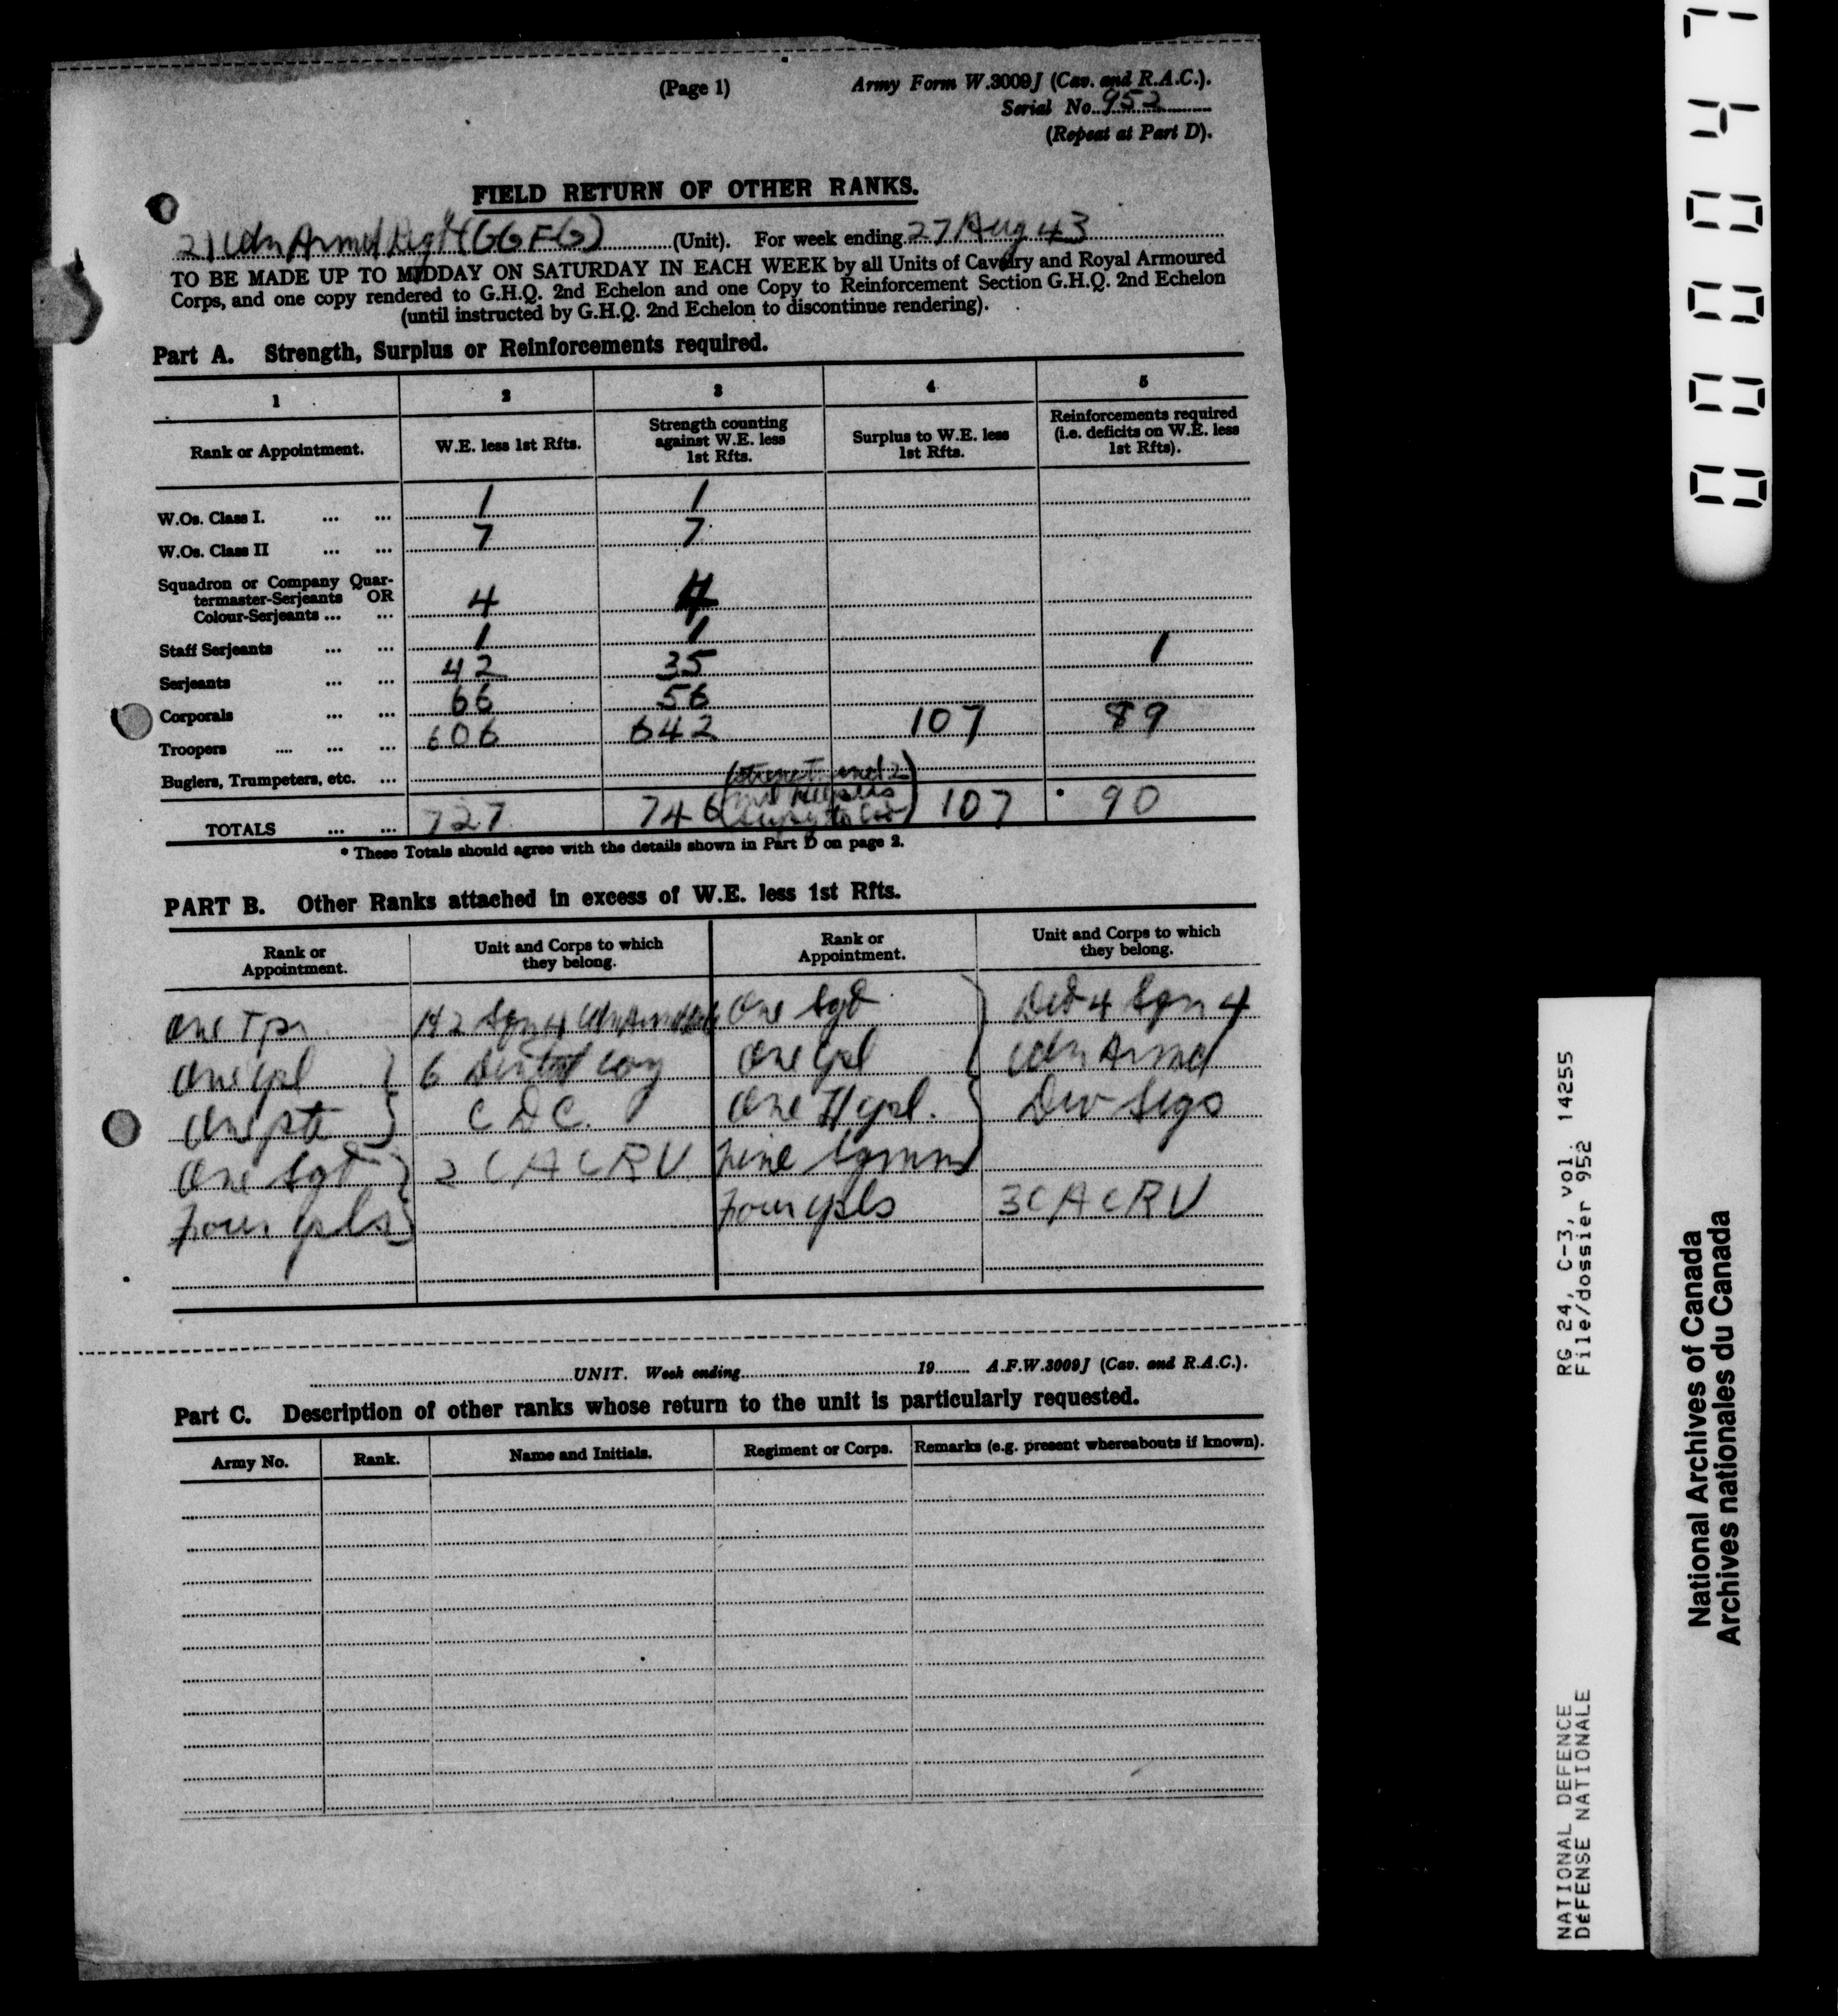 (Page 1)
Army Form W.3009J (Cav. and R.A.C.).
Serial No. 952
(Repeat at Part D).
FIELD RETURN OF OTHER RANKS.
21 Cdn Armd Regt (GGFG) (Unit). For week ending 27 Aug 43
TO BE MADE UP TO MIDDAY ON SATURDAY IN EACH WEEK by all Units of Cavalry and Royal Armoured
Corps, and one copy rendered to G.H.Q. 2nd Echelon and one Copy to Reinforcement Section G.H.Q. 2nd Echelon
(until instructed by G.H.Q. 2nd Echelon to discontinue rendering).
Part A. Strength, Surplus or Reinforcements required.
1 2 3 4 5
Rank or Appointment. W.E. less 1st Rfts. Strength counting against W.E. less 1st Rfts. Surplus to W.E. less 1st Rfts. Reinforcements required (i.e. deficits on W.E. less 1st Rfts).
W.Os. Class I. ... ... 1 1
W.Os. Class II ... ... 7 7
Squadron or Company Quar-
termaster-Serjeants OR
Colour-Serjeants ... ... 4 4
Staff Serjeants ... ... 1 1
Serjeants ... ... 42 35 1
Corporals ... ... 66 56
Troopers .... ... ... 606 642 107 89
Buglers, Trumpeters, etc. ...
TOTALS ... ... 727 746 107 * 90
* These Totals should agree with the details shown in Part D on page 2.
PART B. Other Ranks attached in excess of W.E. less 1st Rfts.
Rank or Appointment. Unit and Corps to which they belong. Rank or Appointment. Unit and Corps to which they belong.
One Tpr H2 Sqn 4 Cdn Armd One Sgt Det 4 Sqn 4
One Cpl } 6 Dental Coy One Cpl Cdn Armd
One pte } C D C. One L/Cpl. Div Sigs
One Sgt } 2 C A C R U nine Sgmn
Four Cpls } Four Cpls 3 C A C R U
UNIT. Week ending 19 A.F.W.3009J (Cav. and R.A.C.).
Part C. Description of other ranks whose return to the unit is particularly requested.
Army No. Rank. Name and Initials. Regiment or Corps. Remarks (e.g. present whereabouts if known).
NATIONAL DEFENCE RG 24, C-3, vol. 14255
DÉFENSE NATIONALE File/dossier 952
National Archives of Canada
Archives nationales du Canada